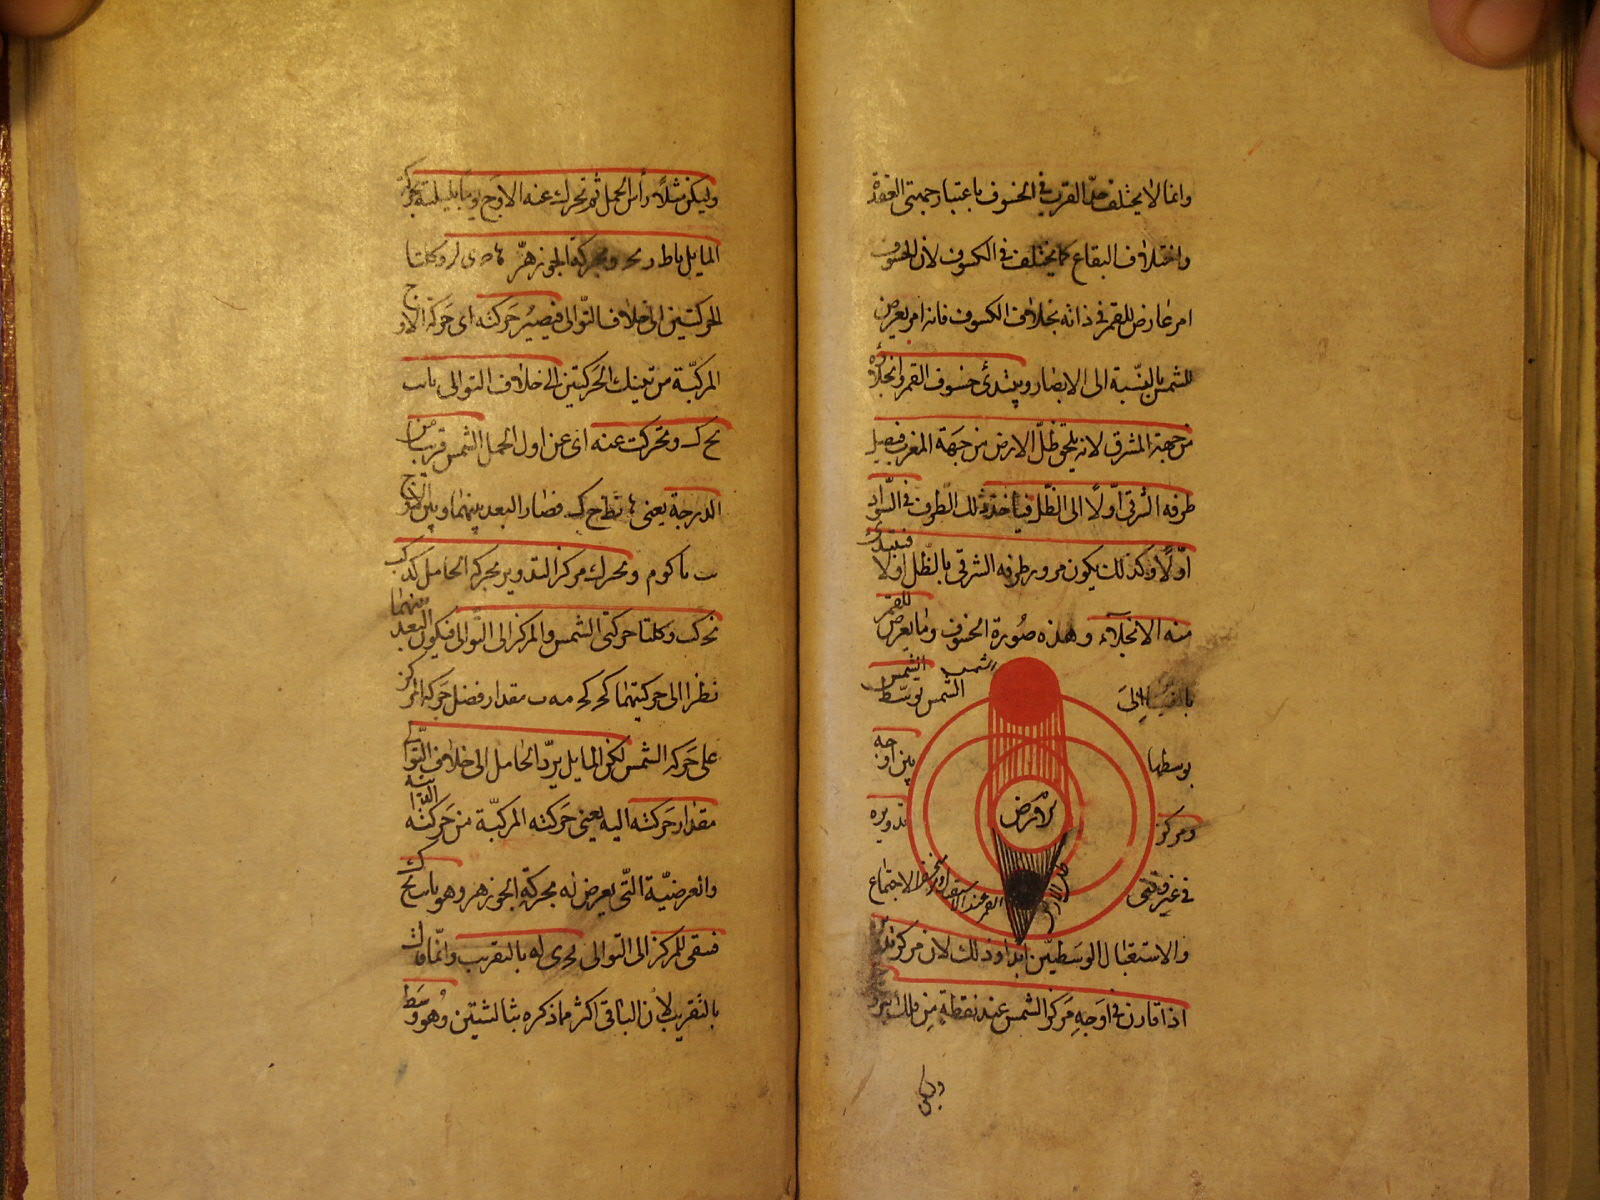 وانما لا يختلف حدّ القرب في الخسوف باعتبار جهتى العقدة
واختلاف البقاع كما يختلف في الكسوف لان الخسوف
امر عارض للقمر في ذاته بخلاف الكسوف فانه امر يعرض
للشمس بالنسبة الى الابصار ويبتدئ خسوف القمر وانجلاؤه
من جهة المشرق لانه يلحق ظلّ الارض من جهة المغرب فيصل
طرفه الشرقى اوّلاً الى الظّل فياخذ ذلك الطرف في السّواد
اوّلاً وكذلك يكون مرور طرفه الشرقى بالظّل اولا فيبتدئ
منه الانجلاء وهذه صورة الخسوف وما يعرض للقمر
بالقياس الى
شمس
الشمس
الشمس بوسّط
بوسطها
بين اوجه
الارض
ومركز
تدويره
في غير وقتى
ظل الارض
القمر عند الاستقبال
الاجتماع
والاستقبال الوسطيّين ابدا وذلك لان مركز تدويره
اذا قارن في اوجه مركز الشمس عند نقطة من فلك البروج
وليكن
وليكن مثلاً رأس الحمل ثم تحرك عنه الاوج يوما بليلته بحركة
المايل يا ط وبحركة الجوزهرّ وكلتا
الحركتين الى خلاف التّوالى فيصيُر حَركتُه اى حَركة الاوج
المركبّة من تينك الحَركتين الى خلاف التوالى
وتحركت عنه اى عن اول الحمل الشمس قريبا من
الدرجة يعنى فصار البعد بينهما وبين الاوج
وتحرك مركز التدوير بحركة الحامل
وكلتا حركتى الشمس والمركز الى التّوالى فيكون البعد بينهما
نظرا الى حركتيهما مقدار فضل حَركة المركز
على حَركة الشمس لكن المايل يردّ الحامل الى خلاف التّوالى
مقدار حَركته اليه يعنى حَركته المركبّة من حَركته الذّاتيّة
والعرضيّة التّى يعرض له بحركة الجوزهر وهو
فيبقى للمركز الى التوالى بالتقريب وانّما قال
بالتقريب لأن الباقى اكثر مما ذكره بثالثتين وُهو وَسَط